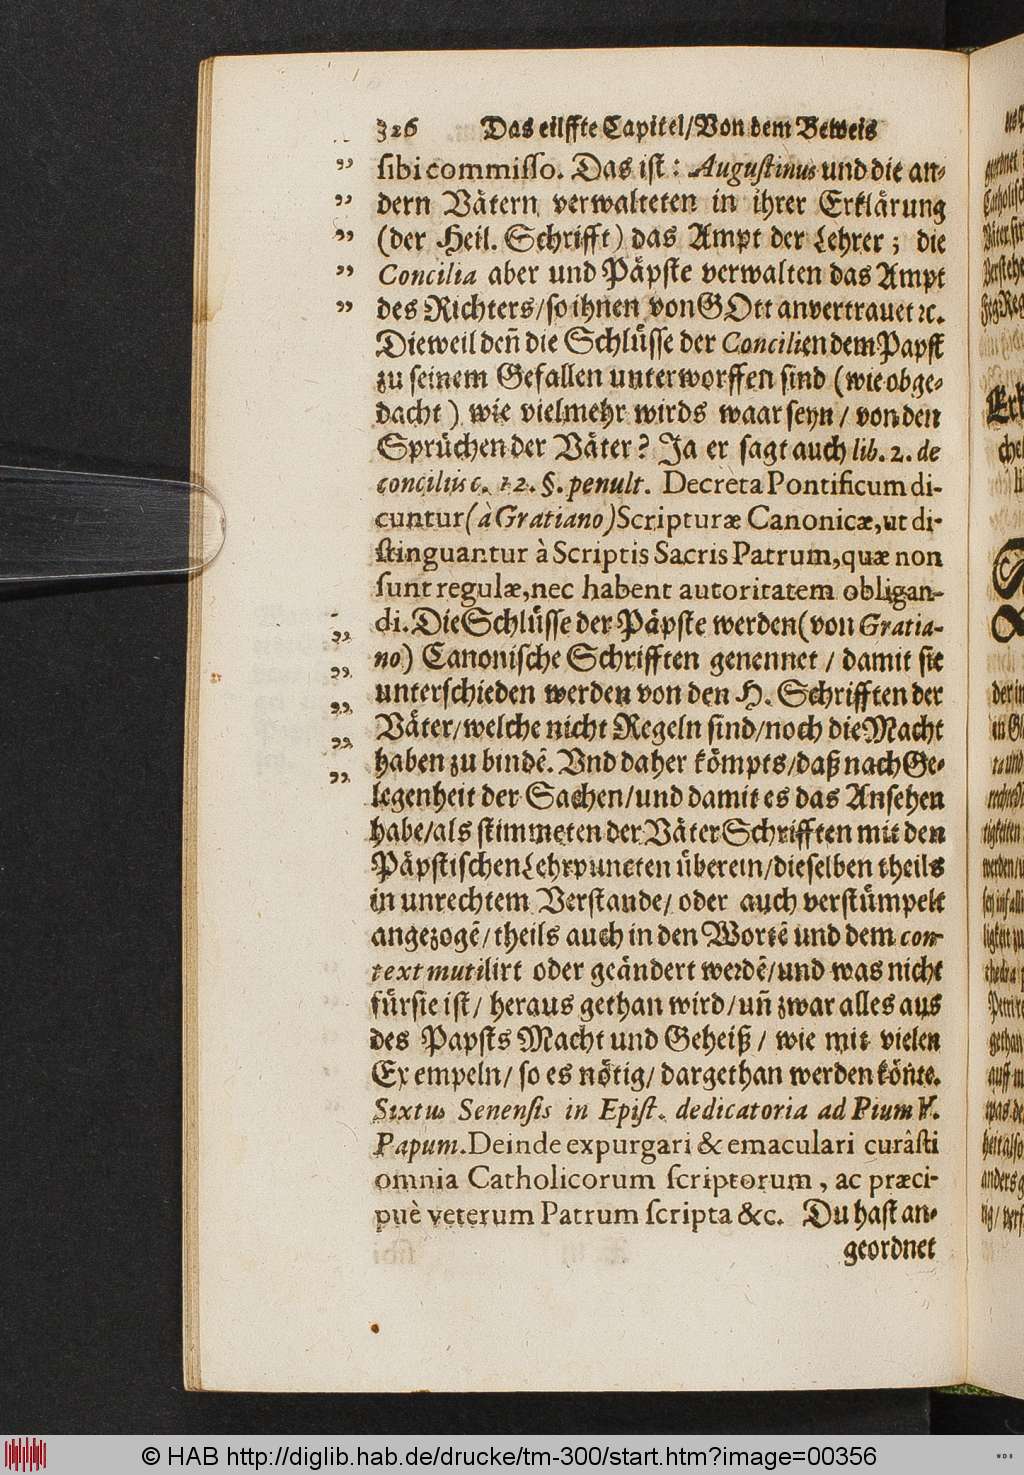 326 Das eilffte Capitel/Von dem Beweis
„ sibi commisso. Das ist: Augustinus und die an-
„ dern Vätern verwalteten in ihrer Erklärung
„ (der Heil. Schrifft) das Ampt der Lehrer; die
„ Concilia aber und Päpste verwalten das Ampt
„ des Richters/so ihnen von GOtt anvertrauet ꝛc.
Dieweil deñ die Schlüsse der Concilien dem Papst
zu seinem Gefallen unterworffen sind (wie obge-
dacht) wie vielmehr wirds waar seyn/ von den
Sprüchen der Väter? Ja er sagt auch lib. 2. de
conciliis c. 12. §. penult. Decreta Pontificum di-
cuntur (à Gratiano) Scripturæ Canonicæ, ut di-
stinguantur à Scriptis Sacris Patrum, quæ non
sunt regulæ, nec habent autoritatem obligan-
„ di. Die Schlüsse der Päpste werden (von Gratia-
„ no) Canonische Schrifften genennet / damit sie
„ unterschieden werden von den H. Schrifften der
„ Väter/welche nicht Regeln sind/noch die Macht
„ haben zu bindẽ. Vnd daher kömpts/daß nach Ge-
legenheit der Sachen/und damit es das Ansehen
habe/als stimmeten der Väter Schrifften mit den
Päpstischen Lehrpuncten überein/dieselben theils
in unrechtem Verstande/ oder auch verstümpelt
angezogẽ/theils auch in den Wortẽ und dem con-
text mutilirt oder geändert werdẽ/und was nicht
für sie ist/ heraus gethan wird/uñ zwar alles aus
des Papsts Macht und Geheiß / wie mit vielen
Exempeln/ so es nötig/ dargethan werden könte.
Sixtus Senensis in Epist. dedicatoria ad Pium V.
Papum. Deinde expurgari & emaculari curâsti
omnia Catholicorum scriptorum, ac præci-
puè veterum Patrum scripta &c. Du hast an-
geordnet
© HAB http://diglib.hab.de/drucke/tm-300/start.htm?image=00356